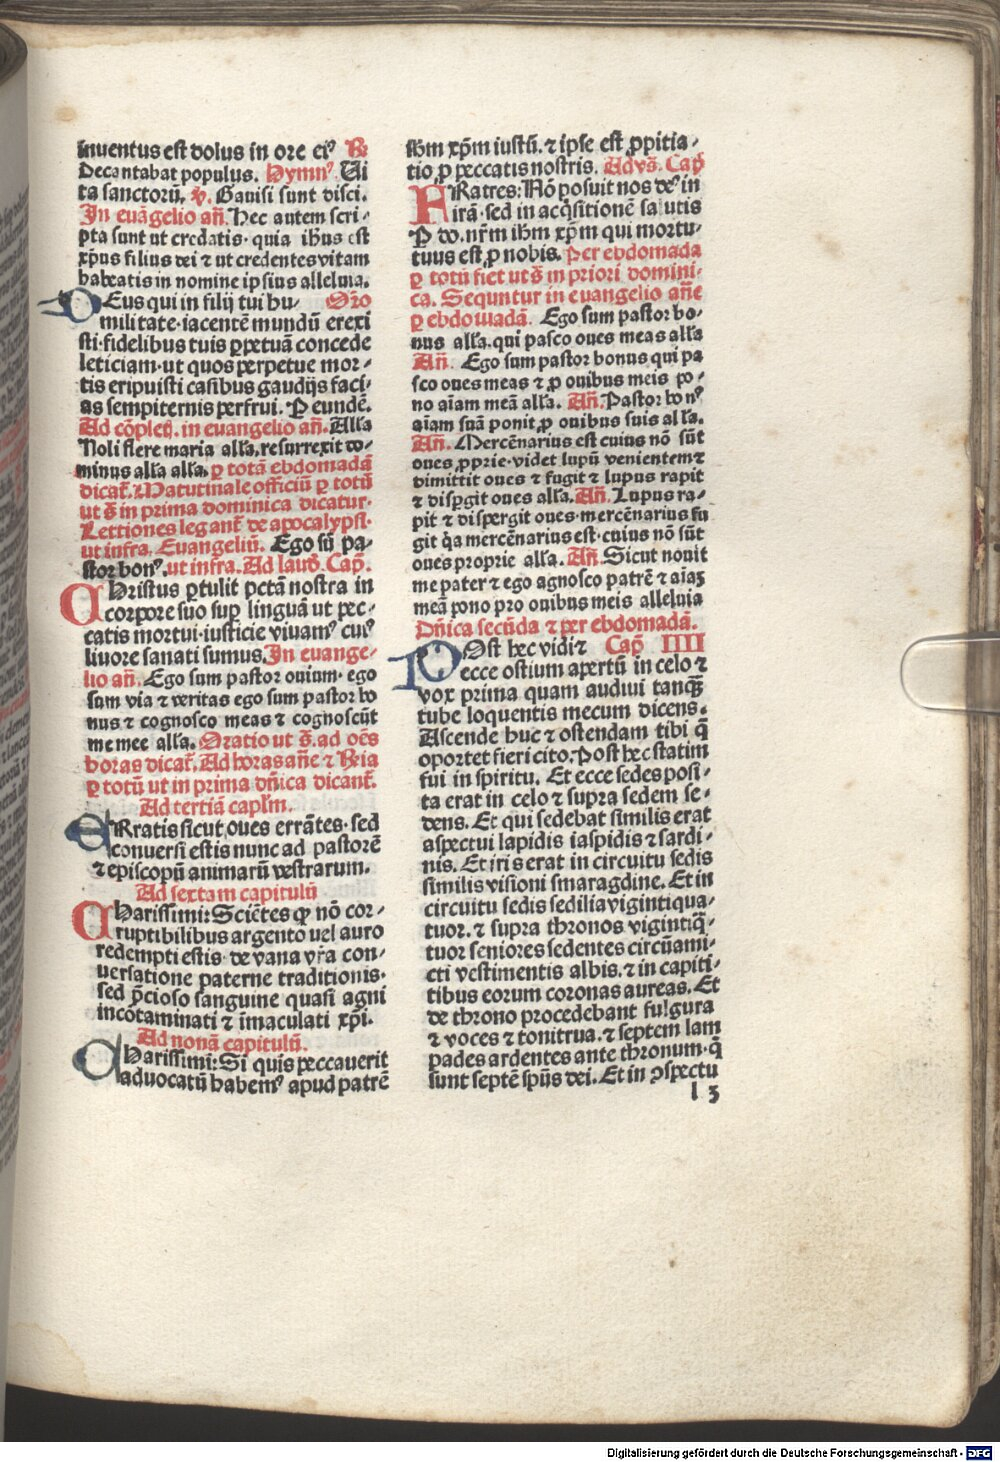 inuentus est dolus in ore eiꝰ ℟
Decantabat populus. Hymnꝰ Ui
ta sanctorū. ℣. Gauisi sunt disci.
In euāgelio an̄. Hec autem scri-
pta sunt ut credatis· quia ihus est
xp̄us filius dei ⁊ ut credentes vitam
habeatis in nomine ipsius alleluia.
DEus qui in filij tui hu- Or̄o
militate·iacentē mundū erexi
sti·fidelibus tuis ꝑpetuā concede
leticiam·ut quos perpetue mor-
tis eripuisti casibus gaudijs faci-
as sempiternis perfrui. P eundē.
Ad cōplet̄. in euangelio an̄. Alla
Noli flere maria alla. resurrexit do-
minus alla alla. ꝑ totā ebdomadā
dicat̄. Matutinale officiū ꝑ totū
ut s̄ in prima dominica dicatur.
Lectiones legant̄ de apocalypsi.
ut infra. Euangeliū. Ego sū pa-
stor bonꝰ. ut infra. Ad laud̄. Cap̄.
CHristus ꝑtulit pctā nostra in
corpore suo suꝑ linguā ut pec-
catis mortui·iusticie viuamꝰ cuiꝰ
liuore sanati sumus. In euange-
lio an̄. Ego sum pastor ouium· ego
sum via ⁊ veritas ego sum pastor bo
nus ⁊ cognosco meas ⁊ cognoscūt
me mee alla. Oratio ut s̄. ad oēs
horas dicat̄. Ad horas an̄e ⁊ ℟ia
ꝑ totū ut in prima dn̄ica dicant̄.
Ad tertiā caplm.
ERratis sicut oues errātes· sed
conuersi estis nunc ad pastorē
⁊ episcopū animarū vestrarum.
Ad sextam capitulū
CHarissimi: Sciētes ꝙ nō cor-
ruptibilibus argento uel auro
redempti estis· de vana vr̄a con-
uersatione paterne traditionis·
sed p̄cioso sanguine quasi agni
incōtaminati ⁊ īmaculati xp̄i.
Ad nonā capitulū.
CHarissimi: Si quis peccauerit
aduocatū habemꝰ apud patrē
ihm xp̄m iustū. ⁊ ipse est ꝓpitia-
tio ꝓ peccatis nostris. Ad vs̄. Cap̄
FRatres: Nō posuit nos deꝰ in
irā· sed in acq̄sitionē salutis
P do. nr̄m ihm xp̄m qui mortu-
tuus est ꝓ nobis. Per ebdomada
ꝑ totū fiet ut s̄ in priori domini-
ca. Sequntur in euangelio an̄e
ꝑ ebdomadā. Ego sum pastor bo-
nus alla. qui pasco oues meas alla
An̄. Ego sum pastor bonus qui pa
sco oues meas ⁊ ꝓ ouibus meis po-
no aīam meā alla. An̄. Pastor bonꝰ
aīam suā ponit ꝓ ouibus suis alla.
An̄. Mercēnarius est cuius nō sūt
oues ꝓprie· videt lupū venientem ⁊
dimittit oues ⁊ fugit ⁊ lupus rapit
⁊ disꝑgit oues alla. An̄. Lupus ra-
pit ⁊ dispergit oues· mercēnarius fu
git q̄a mercēnarius est· cuius nō sūt
oues proprie alla. An̄. Sicut nouit
me pater ⁊ ego agnosco patrē ⁊ aīaꝫ
meā pono pro ouibus meis alleluia
Dn̄ica secūda ⁊ per ebdomadā.
POst hec vidi ⁊ Cap̄ IIII
ecce ostium apertū in celo ⁊
vox prima quam audiui tanqꝫ
tube loquentis mecum dicens.
Ascende huc ⁊ ostendam tibi q̄
oportet fieri cito. Post hec statim
fui in spiritu. Et ecce sedes posi-
ta erat in celo ⁊ supra sedem se-
dens. Et qui sedebat similis erat
aspectui lapidis iaspidis ⁊ sardi-
nis. Et iris erat in circuitu sedis
similis visioni smaragdine. Et in
circuitu sedis sedilia viginti qua-
tuor. ⁊ supra thronos viginti q̄-
tuor seniores sedentes circūami-
cti vestimentis albis. ⁊ in capiti-
tibus eorum coronas aureas. Et
de throno procedebant fulgura
⁊ voces ⁊ tonitrua. ⁊ septem lam
pades ardentes ante thronum· q̄
sunt septē sp̄us dei. Et in ꝯspectu
l 3
Digitalisierung gefördert durch die Deutsche Forschungsgemeinschaft - DFG